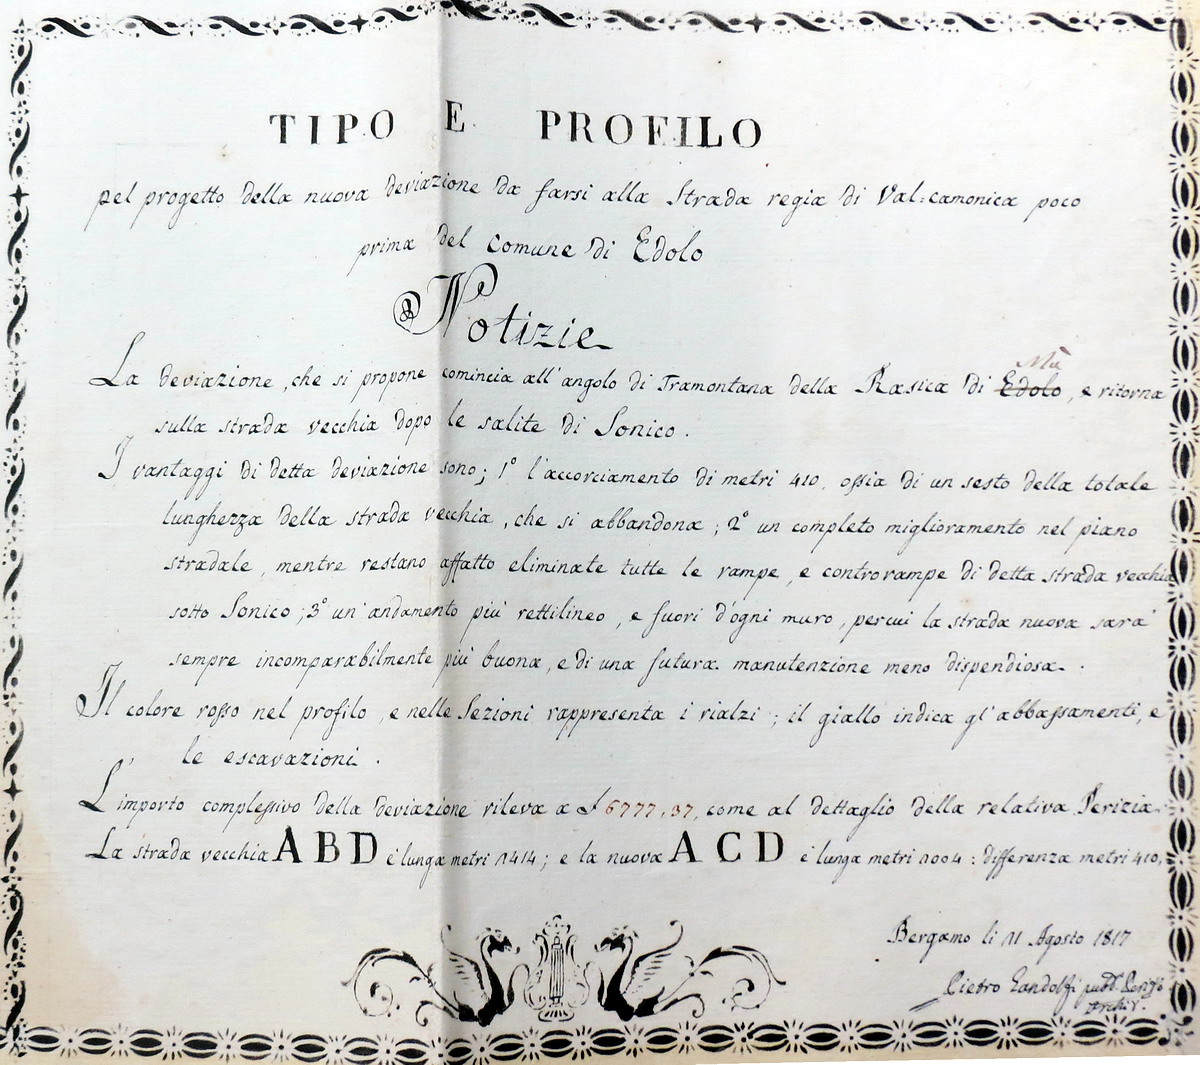 TIPO E PROFILO
pel progetto della nuova deviazione da farsi alla Strada regia di Val=camonica poco
prima del comune di Edolo
Notizie
La deviazione, che si propone comincia all'angolo di Tramontana della Rasica di Edolo Mù, e ritorna
sulla strada vecchia dopo le salite di Sonico.
I vantaggi di detta deviazione sono; 1° l'accorciamento di metri 410, ossia di un sesto della totale
lunghezza della strada vecchia, che si abbandona; 2° un completo miglioramento nel piano
stradale, mentre restano affatto eliminate tutte le rampe, e controrampe di detta strada vecchia
sotto Sonico; 3° un'andamento più rettilineo, e fuori d'ogni muro, percui la strada nuova sarà
sempre incomparabilmente più buona, e di una futura manutenzione meno dispendiosa.
Il colore rosso nel profilo, e nelle Sezioni rappresenta i rialzi; il giallo indica gl'abbassamenti, e
le escavazioni.
L'importo complessivo della deviazione rileva a £ 6777,37, come al dettaglio della relativa Perizia.
La strada vecchia ABD è lunga metri 1414; e la nuova ACD è lunga metri 1004: differenza metri 410,
Bergamo li 11 Agosto 1817
Pietro Gandolfi pubb.
Archit.